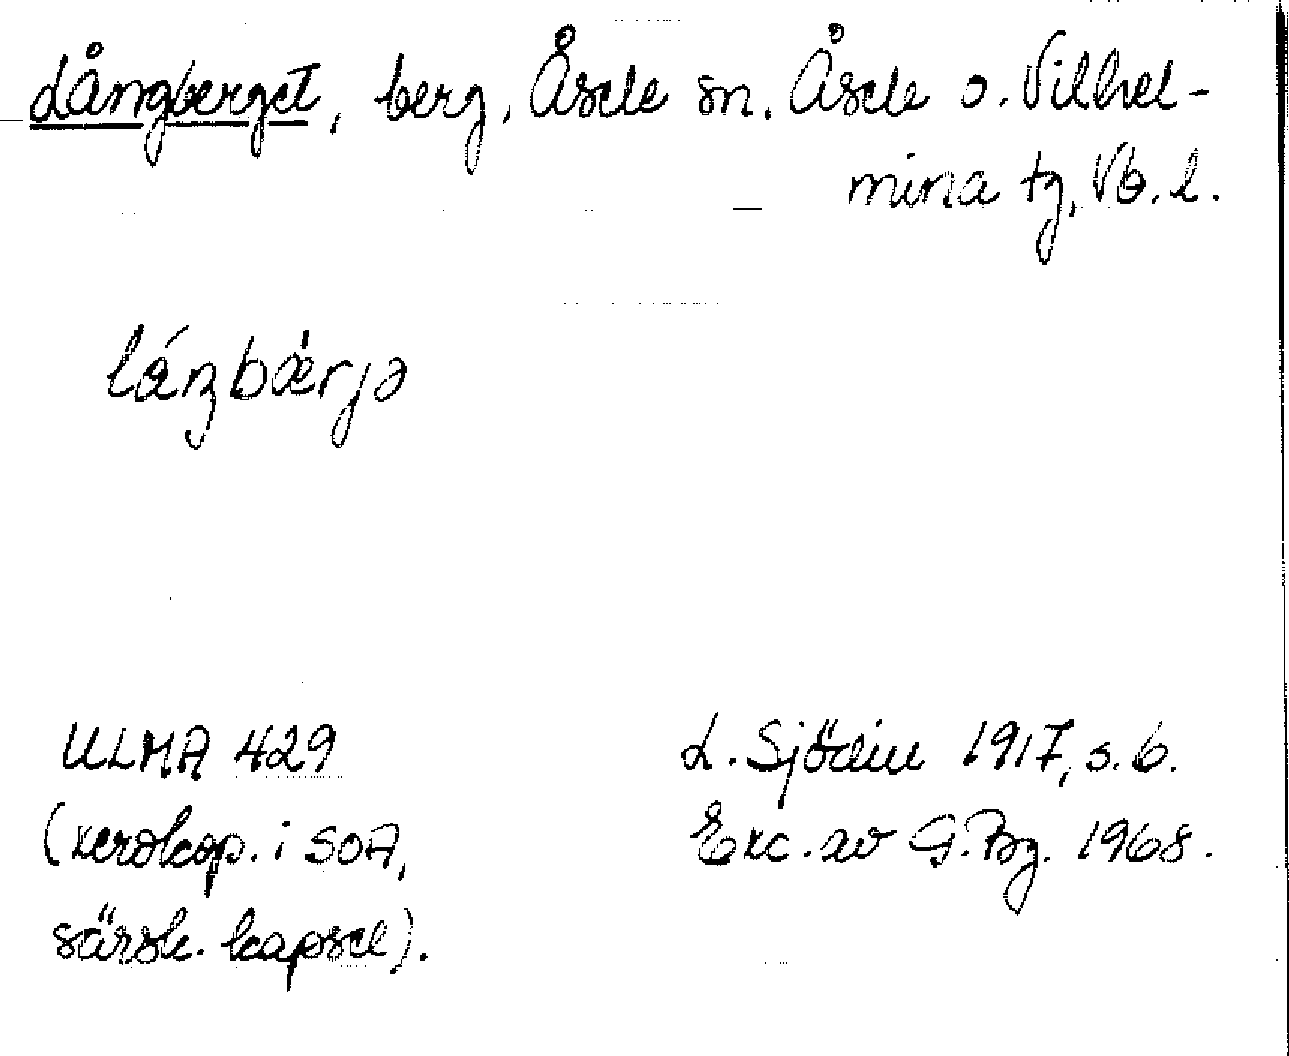 Långberget, berg, Åsele sn. Åsele o. Vilhel-
mina tg, Vb. l.
láŋbǽrjə
ULMA 429
(xerokop. i SOA,
särsk. kapsel).
L. Sjödin 1917, s. 6.
Exc. av G. Bg. 1968.